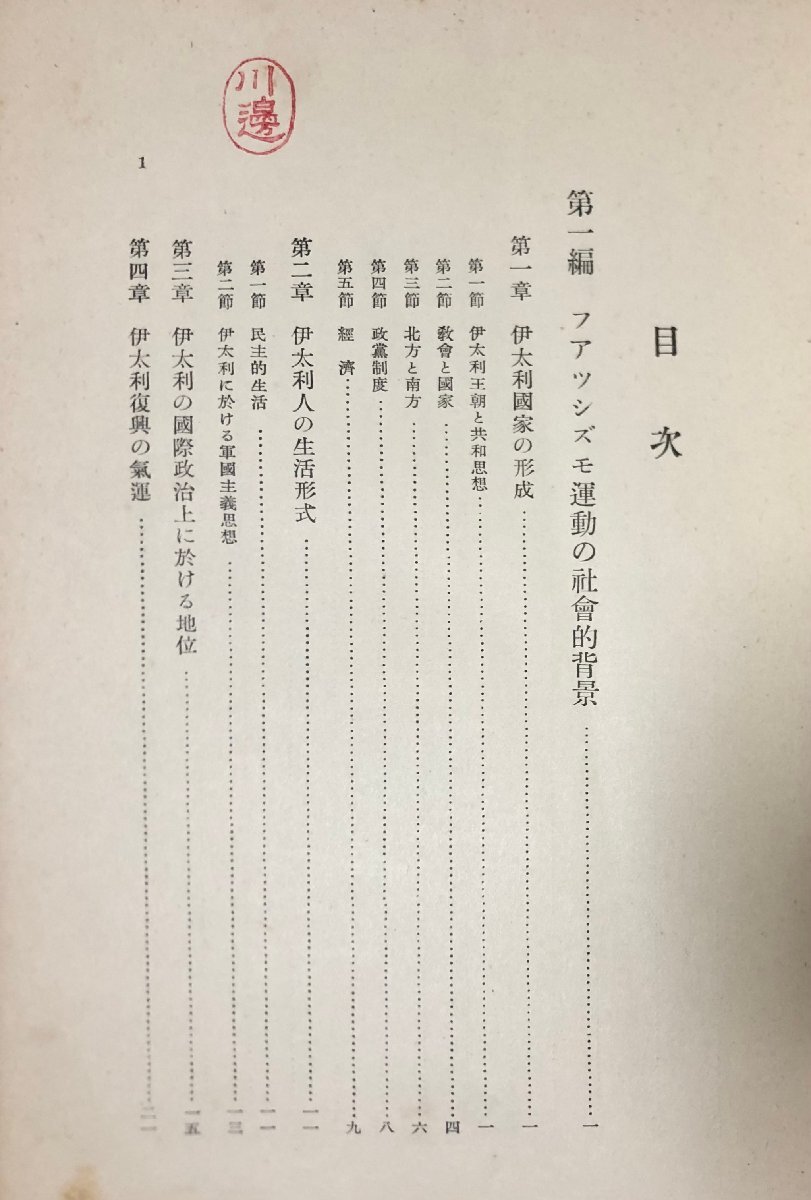 目次
第一編 フアツシズモ運動の社會的背景……一
第一章 伊太利國家の形成……一
第一節 伊太利王朝と共和思想……一
第二節 敎會と國家……四
第三節 北方と南方……六
第四節 政黨制度……八
第五節 經濟……九
第二章 伊太利人の生活形式……一一
第一節 民主的生活……一一
第二節 伊太利に於ける軍國主義思想……一三
第三章 伊太利の國際政治上に於ける地位……一五
第四章 伊太利復興の氣運……二一
1
川邊